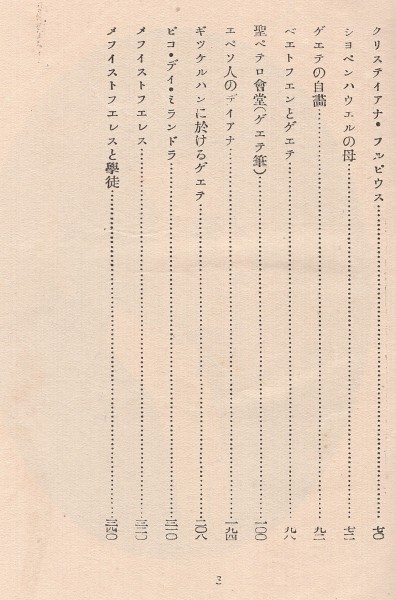 クリステイアナ・フルピウス……七〇
シヨペンハウエルの母……七二
ゲエテの自畵……九二
ベエトフエンとゲエテ……九八
聖ペテロ會堂(ゲエテ筆)……一〇〇
エペソ人のデイアナ……一九四
ギツケルハンに於けるゲエテ……二〇八
ピコ・デイ・ミランドラ……三一〇
メフイストフエレス……三二〇
メフイストフエレスと學徒……三四〇
3